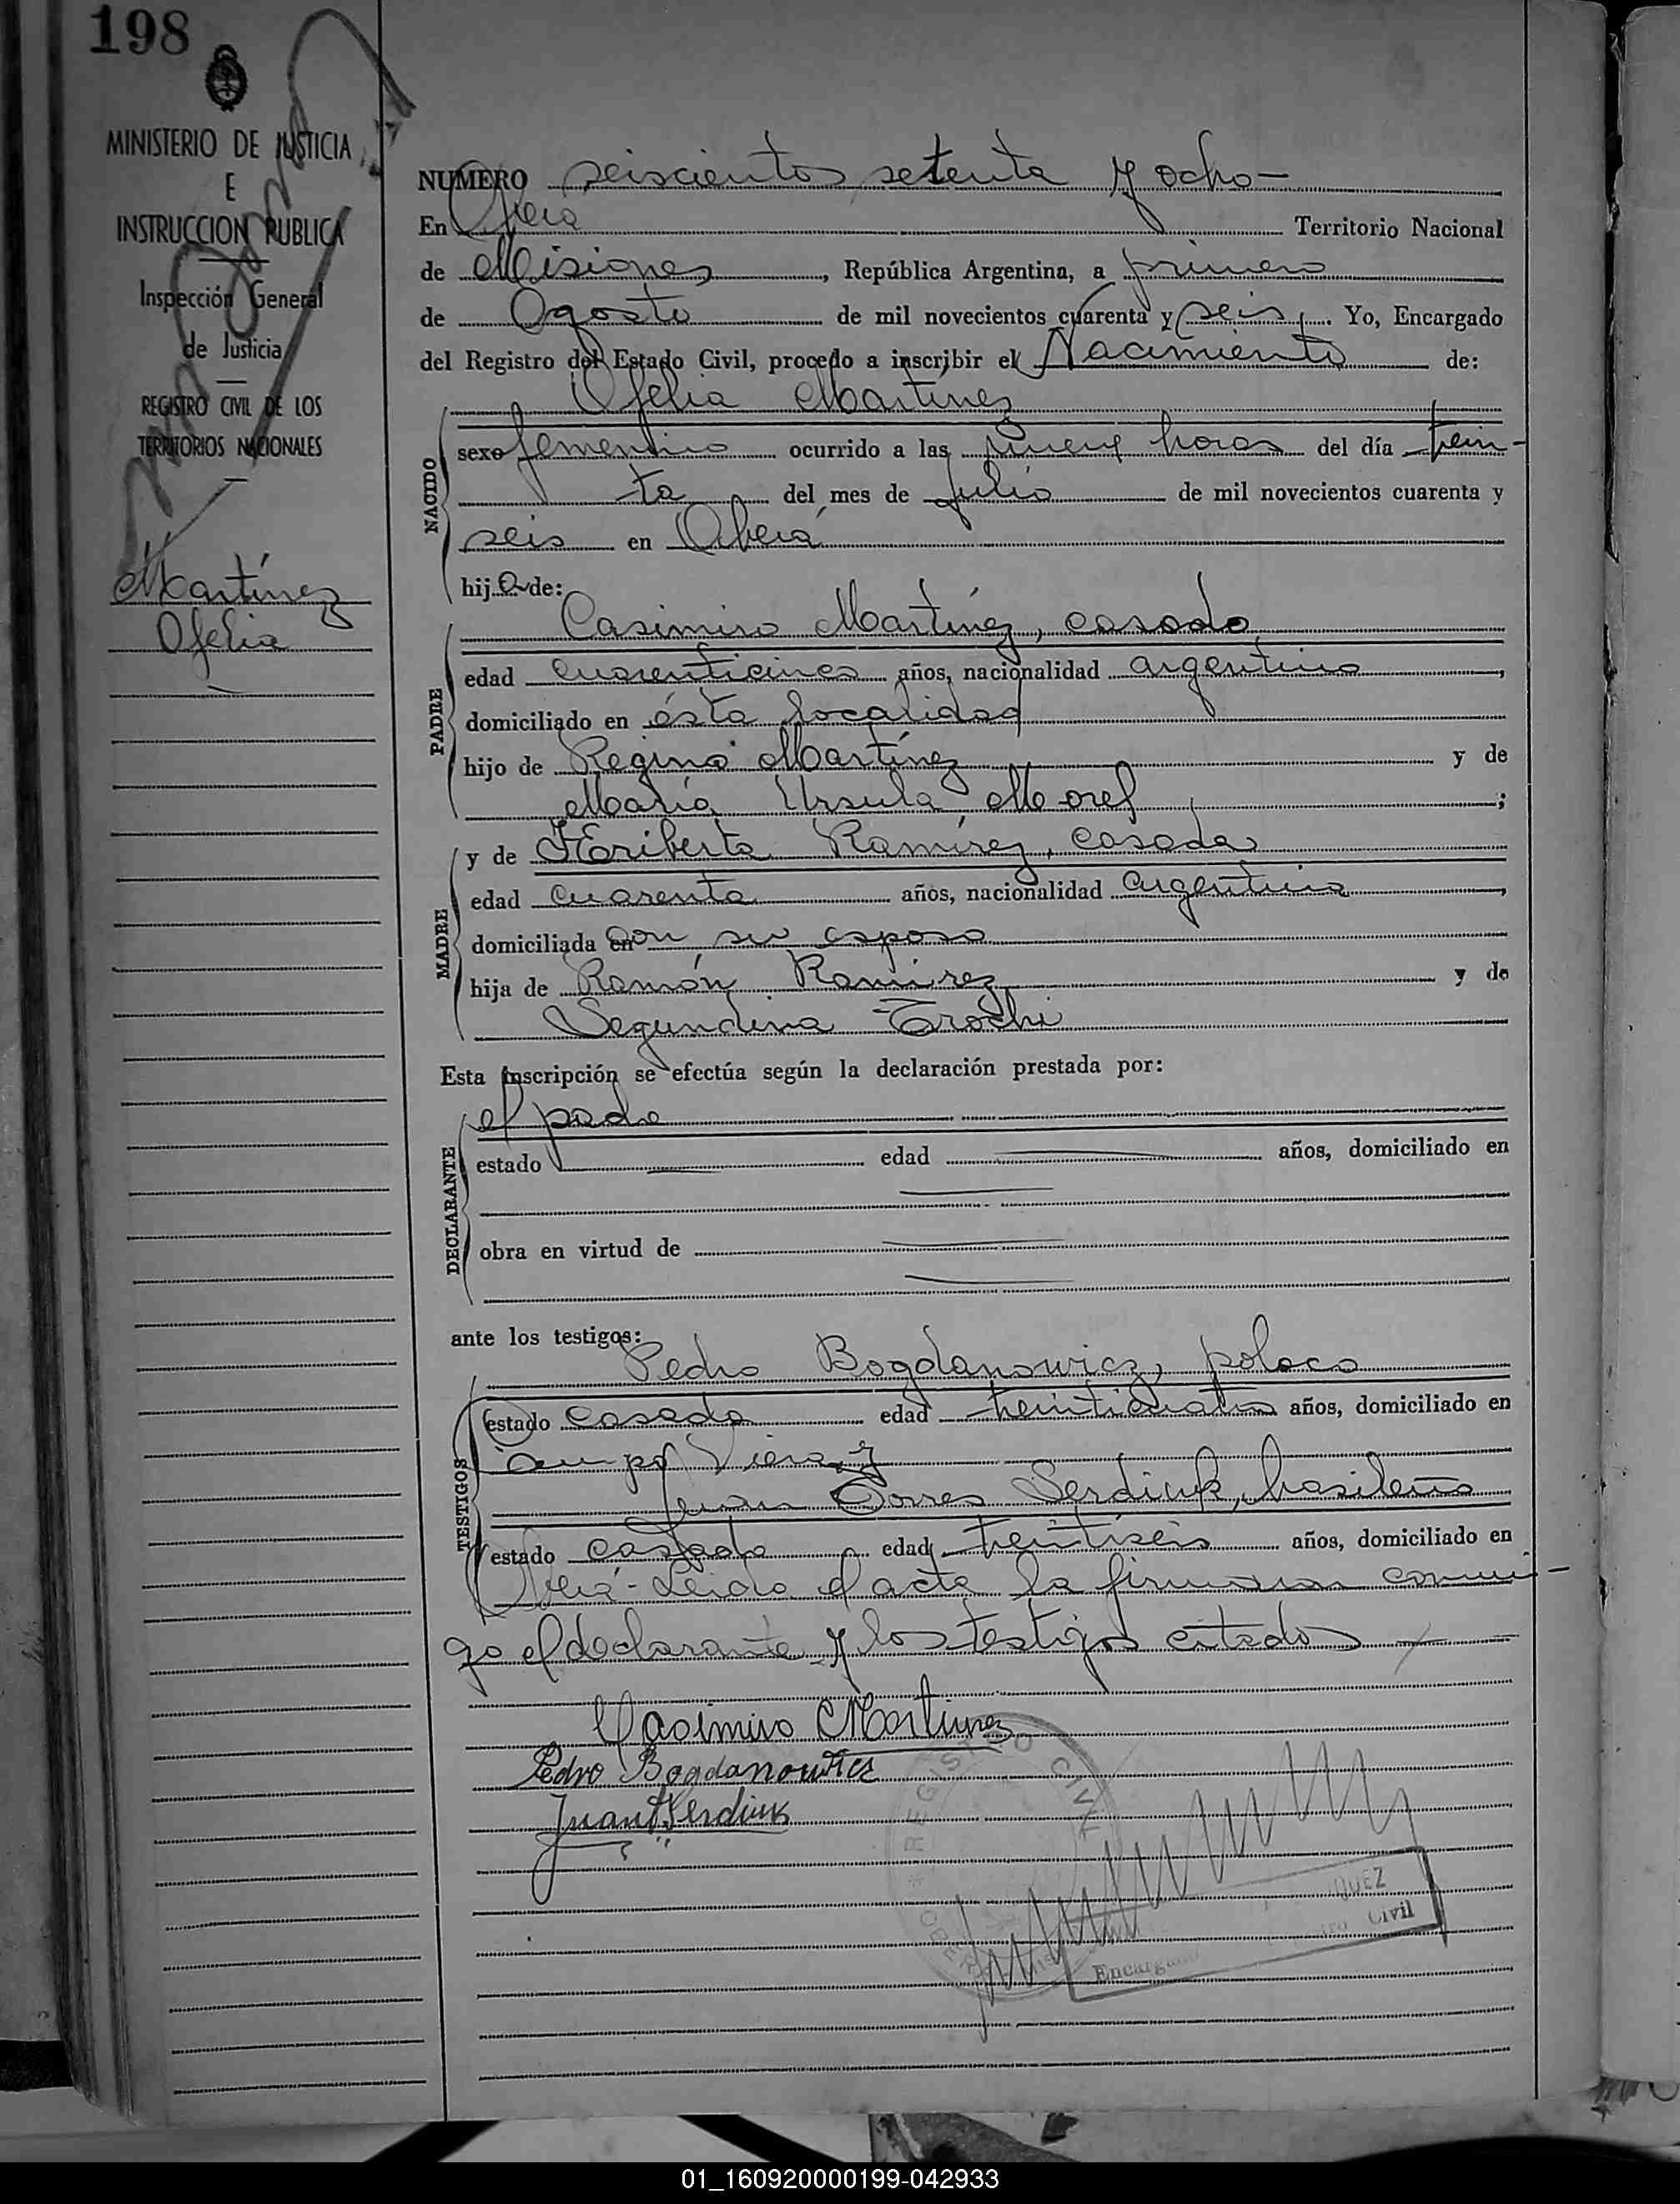 198
MINISTERIO DE JUSTICIA
E
INSTRUCCION PUBLICA
Inspección General
de Justicia
REGISTRO CIVIL DE LOS
TERRITORIOS NACIONALES
Martínez
Ofelia
NUMERO seiscientos setenta y ocho
En Oberá Territorio Nacional
de Misiones, República Argentina, a primero
de Agosto de mil novecientos cuarenta y seis, Yo, Encargado
del Registro del Estado Civil, procedo a inscribir el Nacimiento de:
Ofelia Martínez
NACIDO
sexo femenino ocurrido a las nueve horas del día trein-
ta del mes de Julio de mil novecientos cuarenta y
seis en Oberá
hija de:
Casimiro Martínez, casado
PADRE
edad cuarenticinco años, nacionalidad argentino,
domiciliado en ésta localidad
hijo de Regino Martínez y de
María Ursula Morel;
MADRE
y de Heriberta Ramírez, casada
edad cuarenta años, nacionalidad argentina,
domiciliada en con su esposo
hija de Ramón Ramírez y de
Segundina Trochi
Esta inscripción se efectúa según la declaración prestada por:
el padre
DECLARANTE
estado edad años, domiciliado en
obra en virtud de
ante los testigos:
Pedro Bogdanowicz, polaco
TESTIGOS
estado casado edad treinticuatro años, domiciliado en
Campo Viera y
Juan Torres Serdiuk, brasileño
estado casado edad treintiseis años, domiciliado en
Oberá - Leida el acta la firmaron conmi-
go el declarante y los testigos citados
Casimiro Martinez
Pedro Bogdanowicz
Juan T. Serdiuk
REGISTRO CIVIL
Encargado Civil
01_160920000199-042933